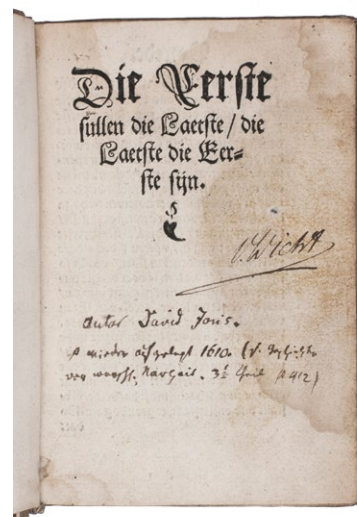 Die Eerste
sullen die Laetste / die
Laetste die Eer=
ste sijn.
v. Wicht
Autor David Joris.
ist wieder aufgelegt 1610. (v.
von Narheit. 3t Theil p 412)